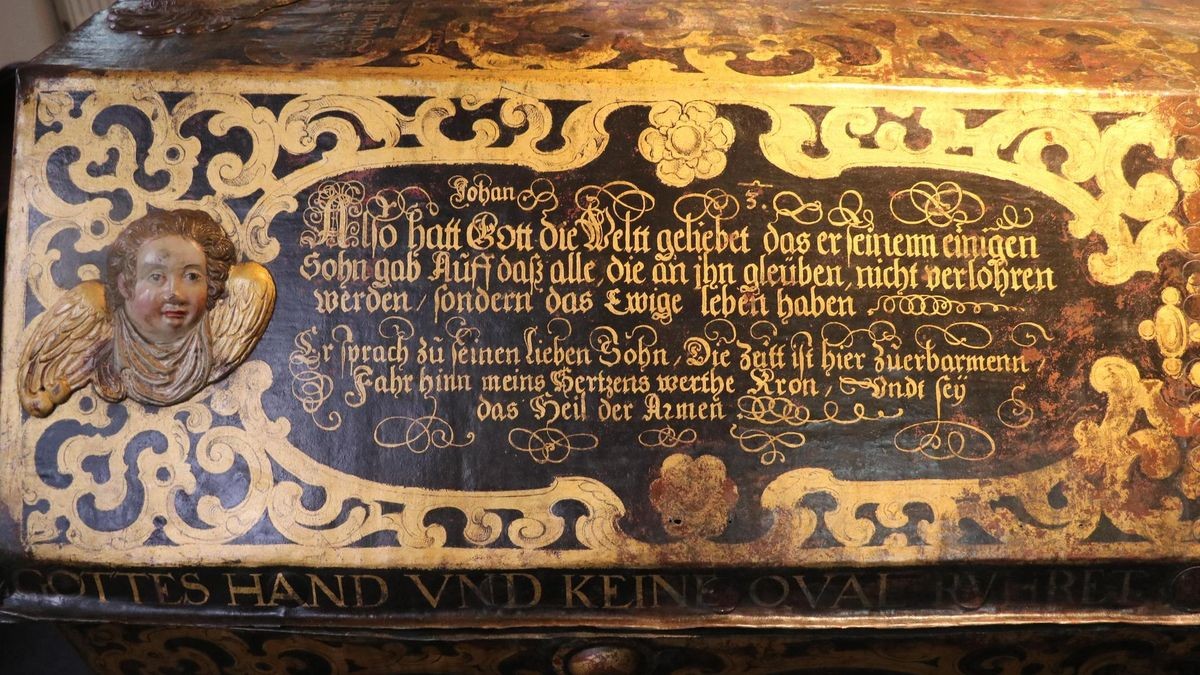 Johan 3.
Also hatt Gott die Weltt geliebet das er seinenn einigen
Sohn gab Auff daß alle, die an ihn gleüben, nicht verlohren
werden / sondern das Ewige leben haben.
Er sprach zü seinen lieben Sohn, Die Zeitt ist hier züerbarmenn,
Fahr hinn meins Hertzens werthe Kron, Vndt sey
das Heil der Armen
GOTTES HAND VND KEINE QVAL RVHRET